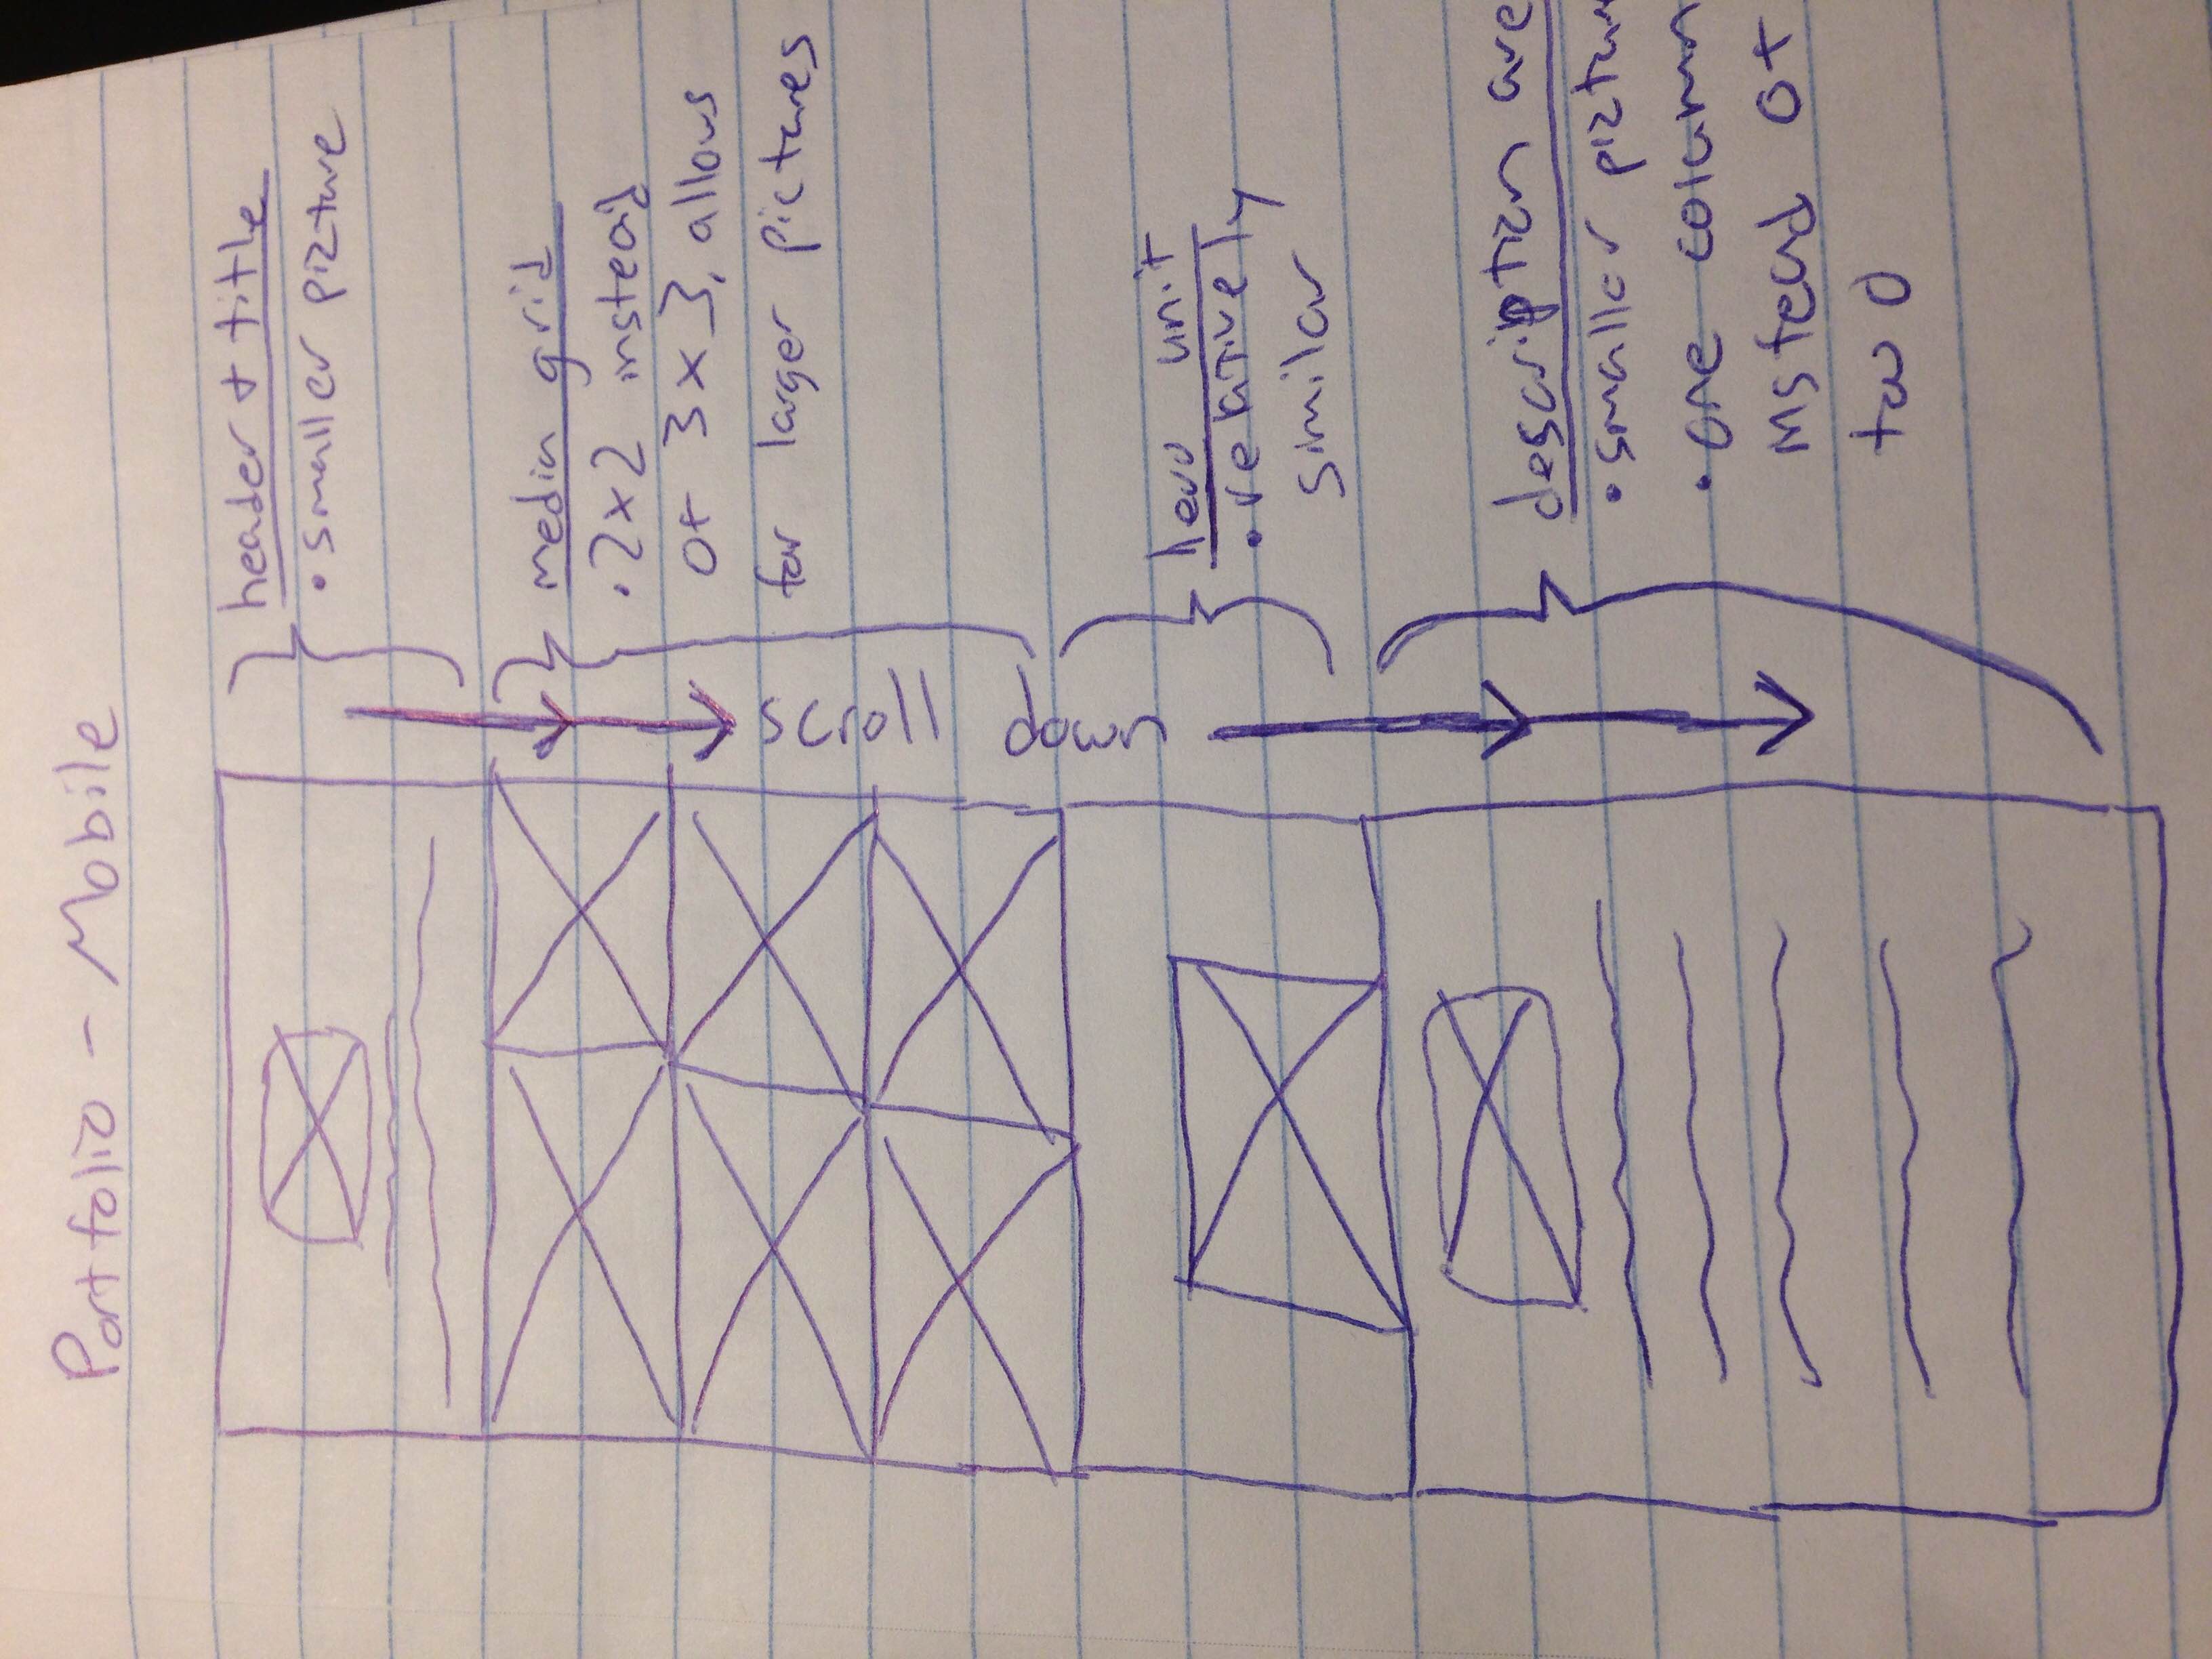 Portfolio - Mobile
header + title
• smaller picture
media grid
• 2x2 instead
of 3x3, allows
for larger pictures
scroll down
hero unit
• relatively
similar
description are
• smaller pictur
• one column
instead of
two